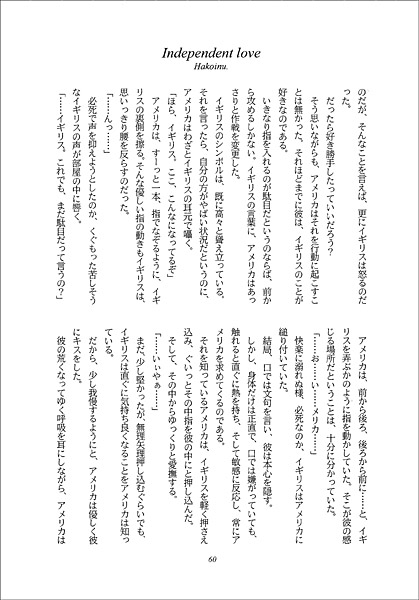 Independent love
Hakoiru.
のだが、そんなことを言えば、更にイギリスは怒るのだ
った。
だったら好き勝手したっていいだろう?
そう思いながらも、アメリカはそれを行動に起こすこ
とは無かった。それほどまでに彼は、イギリスのことが
好きなのである。
いきなり指を入れるのが駄目だというのならば、前か
ら攻めるしかない。イギリスの言葉に、アメリカはあっ
さりと作戦を変更した。
イギリスのシンボルは、既に高々と聳え立っている。
それを言ったら、自分の方がやばい状況だというのに、
アメリカはわざとイギリスの耳元で囁く。
「ほら、イギリス、ここ、こんなになってるぞ」
アメリカは、すーっと一本、指でなぞるように、イギ
リスの裏側を擦る。そんな優しい指の動きもイギリスは、
思いっきり腰を反らすのだった。
「……んっ……」
必死で声を抑えようとしたのか、くぐもった苦しそう
なイギリスの声が部屋の中に響く。
「……イギリス、これでも、まだ駄目だって言うの?」
アメリカは、前から後ろ、後ろから前に……と、イギ
リスを弄ぶかのように指を動かしていた。そこが彼の感
じる場所だということは、十分に分かっていた。
「……お……い……メリカ……」
快楽に溺れぬ様、必死なのか、イギリスはアメリカに
縋り付いていた。
結局、口では文句を言い、彼は本心を隠す。
しかし、身体だけは正直で、口では嫌がっていても、
触れると直ぐに熱を持ち、そして敏感に反応し、常にア
メリカを求めてくるのである。
それを知っているアメリカは、イギリスを軽く押さえ
込み、ぐいっとその中指を彼の中にと押し込んだ。
そして、その中からゆっくりと愛撫する。
「……いぃやぁ……」
まだ、少し堅かったが、無理矢理押し込むぐらいでも、
イギリスは直ぐに気持ち良くなることをアメリカは知っ
ている。
だから、少し我慢するようにと、アメリカは優しく彼
にキスをした。
彼の荒くなってゆく呼吸を耳にしながら、アメリカは
60